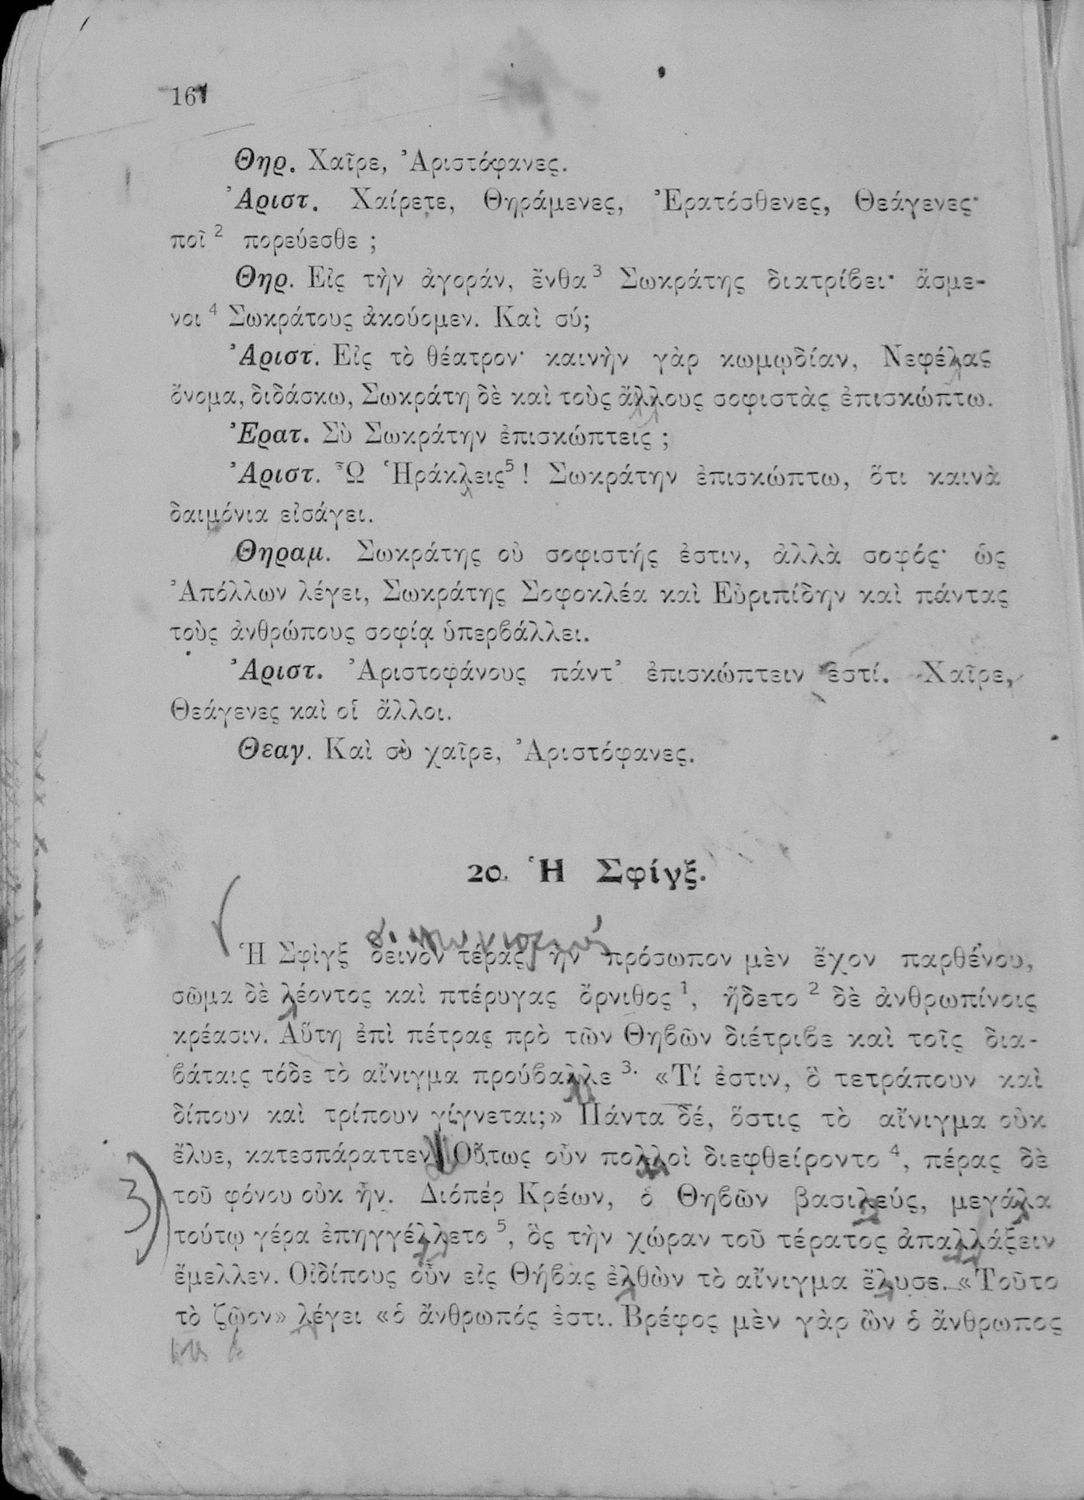 16
Θηρ. Χαῖρε, Ἀριστόφανες.
Ἀριστ. Χαίρετε, Θηράμενες, Ἐρατόσθενες, Θεάγενες·
ποῖ ² πορεύεσθε ;
Θηρ. Εἰς τὴν ἀγοράν, ἔνθα ³ Σωκράτης διατρίβει· ἄσμε-
νοι ⁴ Σωκράτους ἀκούομεν. Καὶ σύ;
Ἀριστ. Εἰς τὸ θέατρον· καινὴν γὰρ κωμῳδίαν, Νεφέλας
ὄνομα, διδάσκω, Σωκράτη δὲ καὶ τοὺς ἄλλους σοφιστὰς ἐπισκώπτω.
Ἐρατ. Σὺ Σωκράτην ἐπισκώπτεις ;
Ἀριστ. Ὦ Ἡράκλεις⁵ ! Σωκράτην ἐπισκώπτω, ὅτι καινὰ
δαιμόνια εἰσάγει.
Θηραμ. Σωκράτης οὐ σοφιστής ἐστιν, ἀλλὰ σοφός· ὡς
Ἀπόλλων λέγει, Σωκράτης Σοφοκλέα καὶ Εὐριπίδην καὶ πάντας
τοὺς ἀνθρώπους σοφίᾳ ὑπερβάλλει.
Ἀριστ. Ἀριστοφάνους πάντ' ἐπισκώπτειν ἐστί. Χαῖρε,
Θεάγενες καὶ οἱ ἄλλοι.
Θεαγ. Καὶ σὺ χαῖρε, Ἀριστόφανες.
20. Ἡ Σφίγξ.
Ἡ Σφὶγξ δεινὸν τέρας ἦν πρόσωπον μὲν ἔχον παρθένου,
σῶμα δὲ λέοντος καὶ πτέρυγας ὄρνιθος ¹, ἥδετο ² δὲ ἀνθρωπίνοις
κρέασιν. Αὕτη ἐπὶ πέτρας πρὸ τῶν Θηβῶν διέτριβε καὶ τοῖς δια-
βάταις τόδε τὸ αἴνιγμα προύβαλλε ³· «Τί ἐστιν, ὃ τετράπουν καὶ
δίπουν καὶ τρίπουν γίγνεται;» Πάντα δέ, ὅστις τὸ αἴνιγμα οὐκ
ἔλυε, κατεσπάραττεν. Οὕτως οὖν πολλοὶ διεφθείροντο ⁴, πέρας δὲ
τοῦ φόνου οὐκ ἦν. Διόπερ Κρέων, ὁ Θηβῶν βασιλεύς, μεγάλα
τούτῳ γέρα ἐπηγγέλλετο ⁵, ὃς τὴν χώραν τοῦ τέρατος ἀπαλλάξειν
ἔμελλεν. Οἰδίπους οὖν εἰς Θήβας ἐλθὼν τὸ αἴνιγμα ἔλυσε. «Τοῦτο
τὸ ζῷον» λέγει «ὁ ἄνθρωπός ἐστι. Βρέφος μὲν γὰρ ὢν ὁ ἄνθρωπος